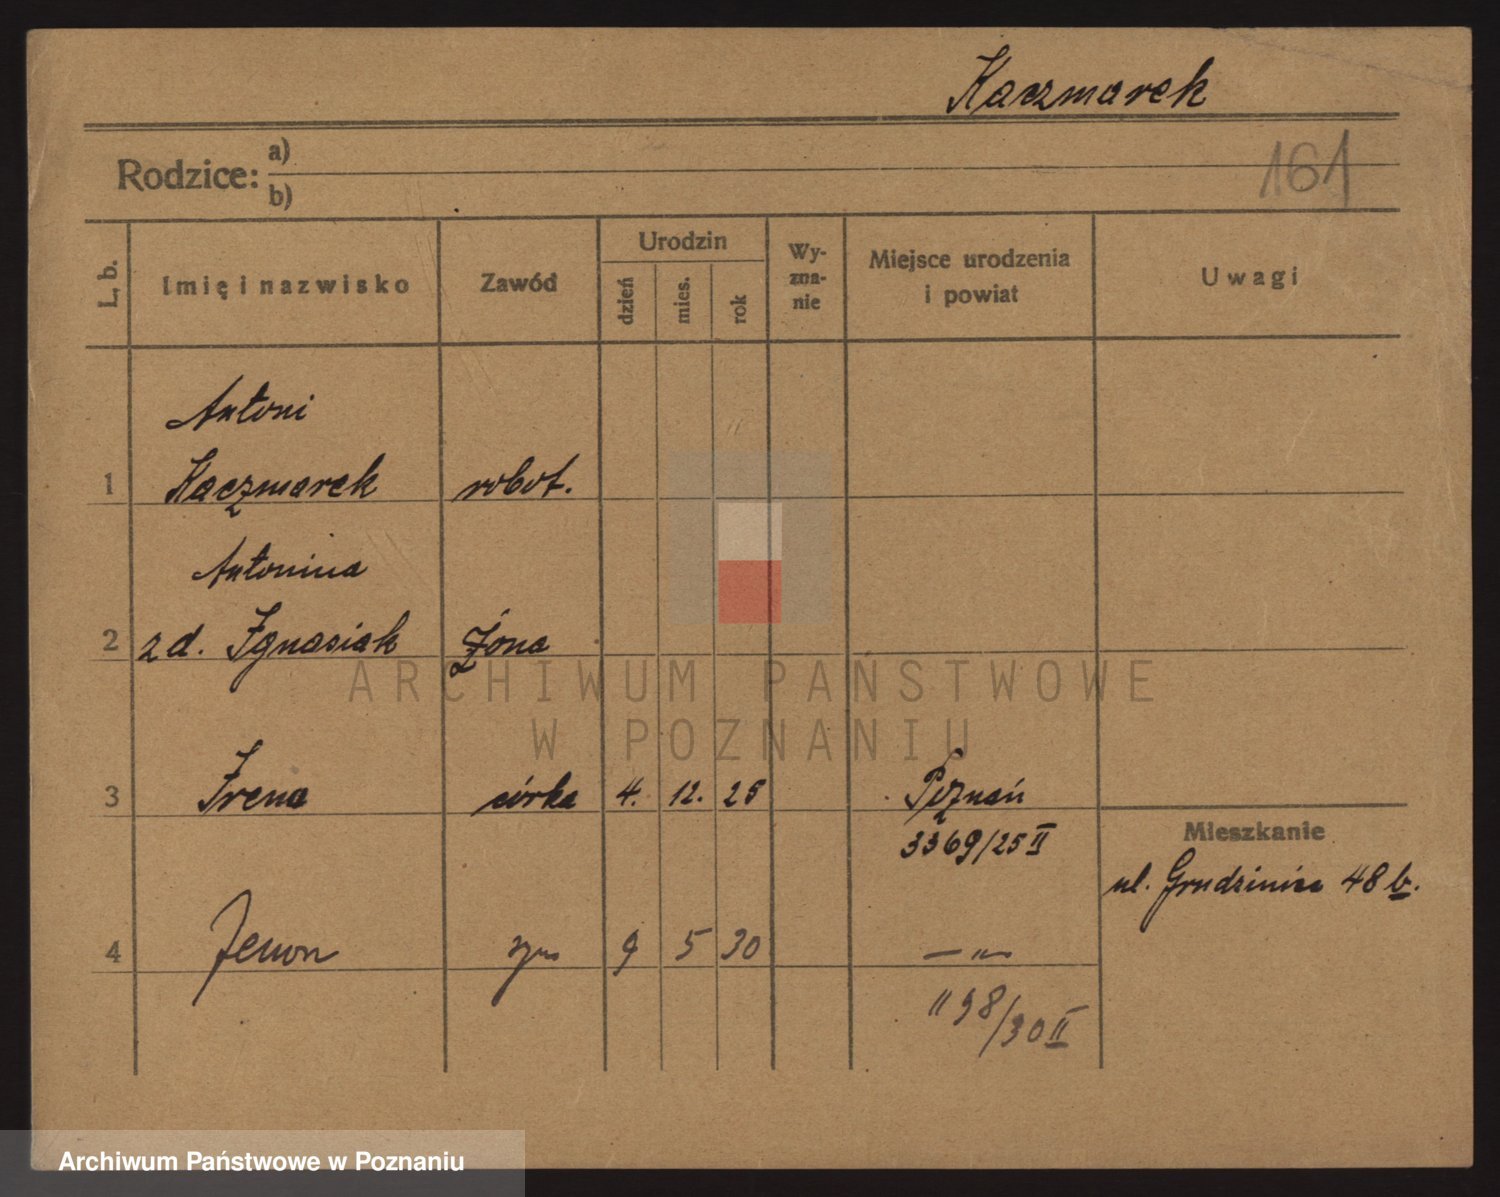 Kaczmarek
161
Rodzice: a)
b)
L. b.
Imię i nazwisko
Zawód
Urodzin
dzień
mies.
rok
Wy-
zna-
nie
Miejsce urodzenia
i powiat
Uwagi
Antoni
1 Kaczmarek robot.
Antonina
2 zd. Ignasiak Żona
3 Irena córka 4. 12. 25 Poznań
3369/25 II
Mieszkanie
ul. Grudzieniec 48 b.
4 Zenon syn 9 5 30 — " —
1198/30 II
ARCHIWUM PAŃSTWOWE
W POZNANIU
Archiwum Państwowe w Poznaniu